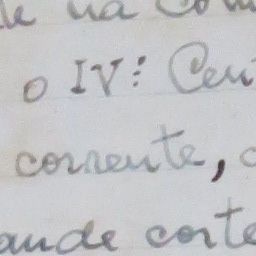 na
o IV: Cen
corrente,
ande corte